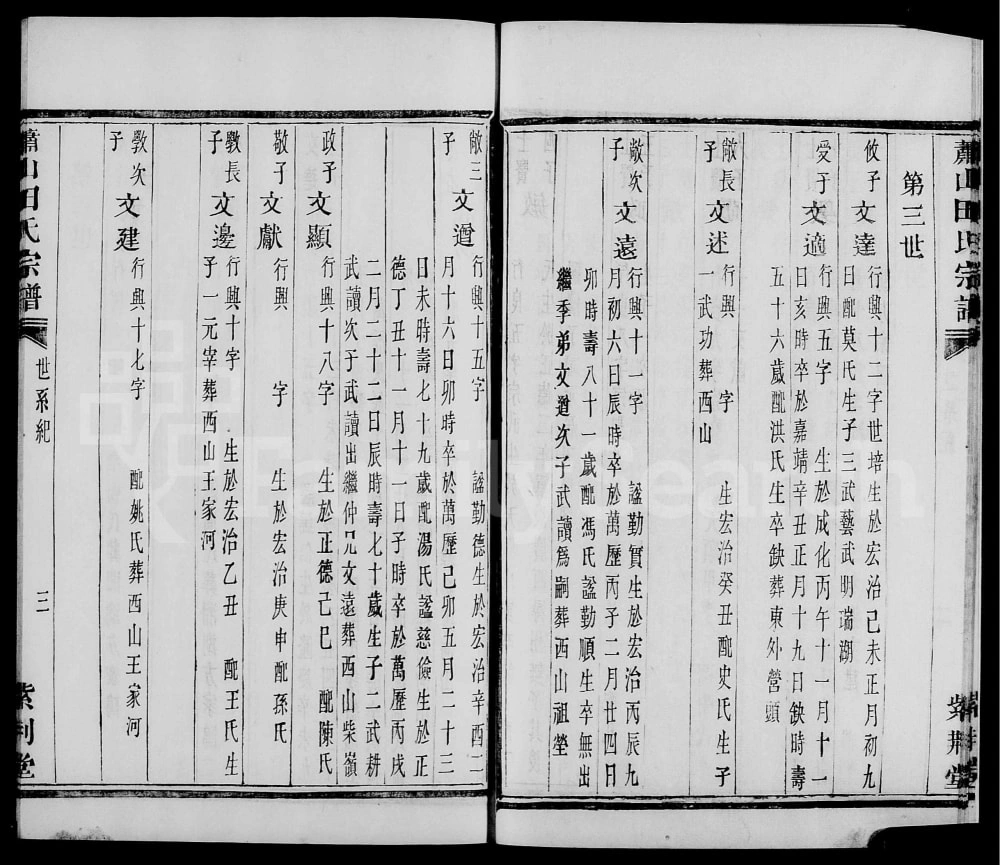 蕭山田氏宗譜
紫荆堂
第三世
攸子
文達
行興十二字世培生於宏治己未正月初九
日配莫氏生子三武藝武明瑞湖
受子
文適
行興五字　生於成化丙午十一月十一
日亥時卒於嘉靖辛丑正月十九日缺時壽
五十六歲配洪氏生卒缺葬東外營頭
敞長
子
文述
行興　字　生宏治癸丑配史氏生子
一武功葬西山
敞次
子
文遠
行興十一字　諡勤實生於宏治丙辰九
月初六日辰時卒於萬歷丙子二月廿四日
卯時壽八十一歲配馮氏諡勤順生卒無出
繼季弟文遒次子武讀爲嗣葬西山祖塋
敞三
子
文遒
行興十五字　諡勤德生於宏治辛酉二
月十六日卯時卒於萬歷己卯五月二十三
日未時壽七十九歲配湯氏諡慈儉生於正
德丁丑十一月十一日子時卒於萬歷丙戌
二月二十二日辰時壽七十歲生子二武耕
武讀次子武讀出繼仲兄文遠葬西山柴嶺
政子
文顯
行興十八字　生於正德己巳　配陳氏
敬子
文獻
行興　字　生於宏治庚申配孫氏
斅長
子
文邊
行興十字　生於宏治乙丑　配王氏生
子一元宰葬西山王家河
斅次
子
文建
行興十七字　配姚氏葬西山王家河
蕭山田氏宗譜
世系紀
三
紫荆堂
FamilySearch